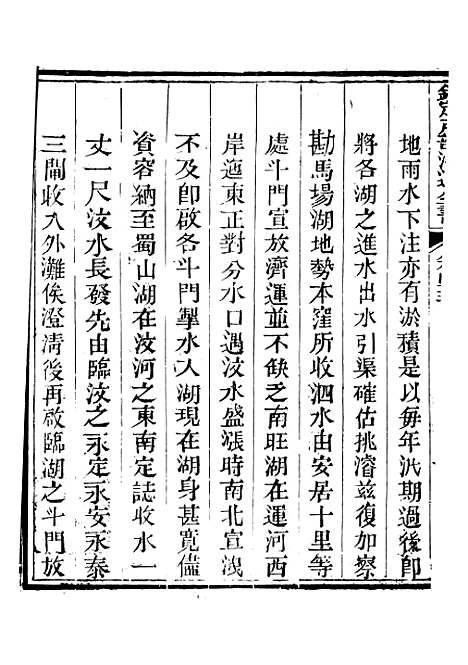 地雨水下注亦有淤積是以每年汛期過後卽
將各湖之進水出水引渠確估挑濬兹復加察
勘馬塲湖地勢本窪所收泗水由安居十里等
處斗門宣放濟運並不缺乏南旺湖在運河西
岸迤東正對分水口遇汶水盛漲時南北宣洩
不及卽啟各斗門掣水入湖現在湖身甚寬儘
資容納至蜀山湖在汶河之東南定誌收水一
丈一尺汶水長發先由臨汶之永定永安永泰
三閘收入外灘俟澄清後再啟臨湖之斗門放